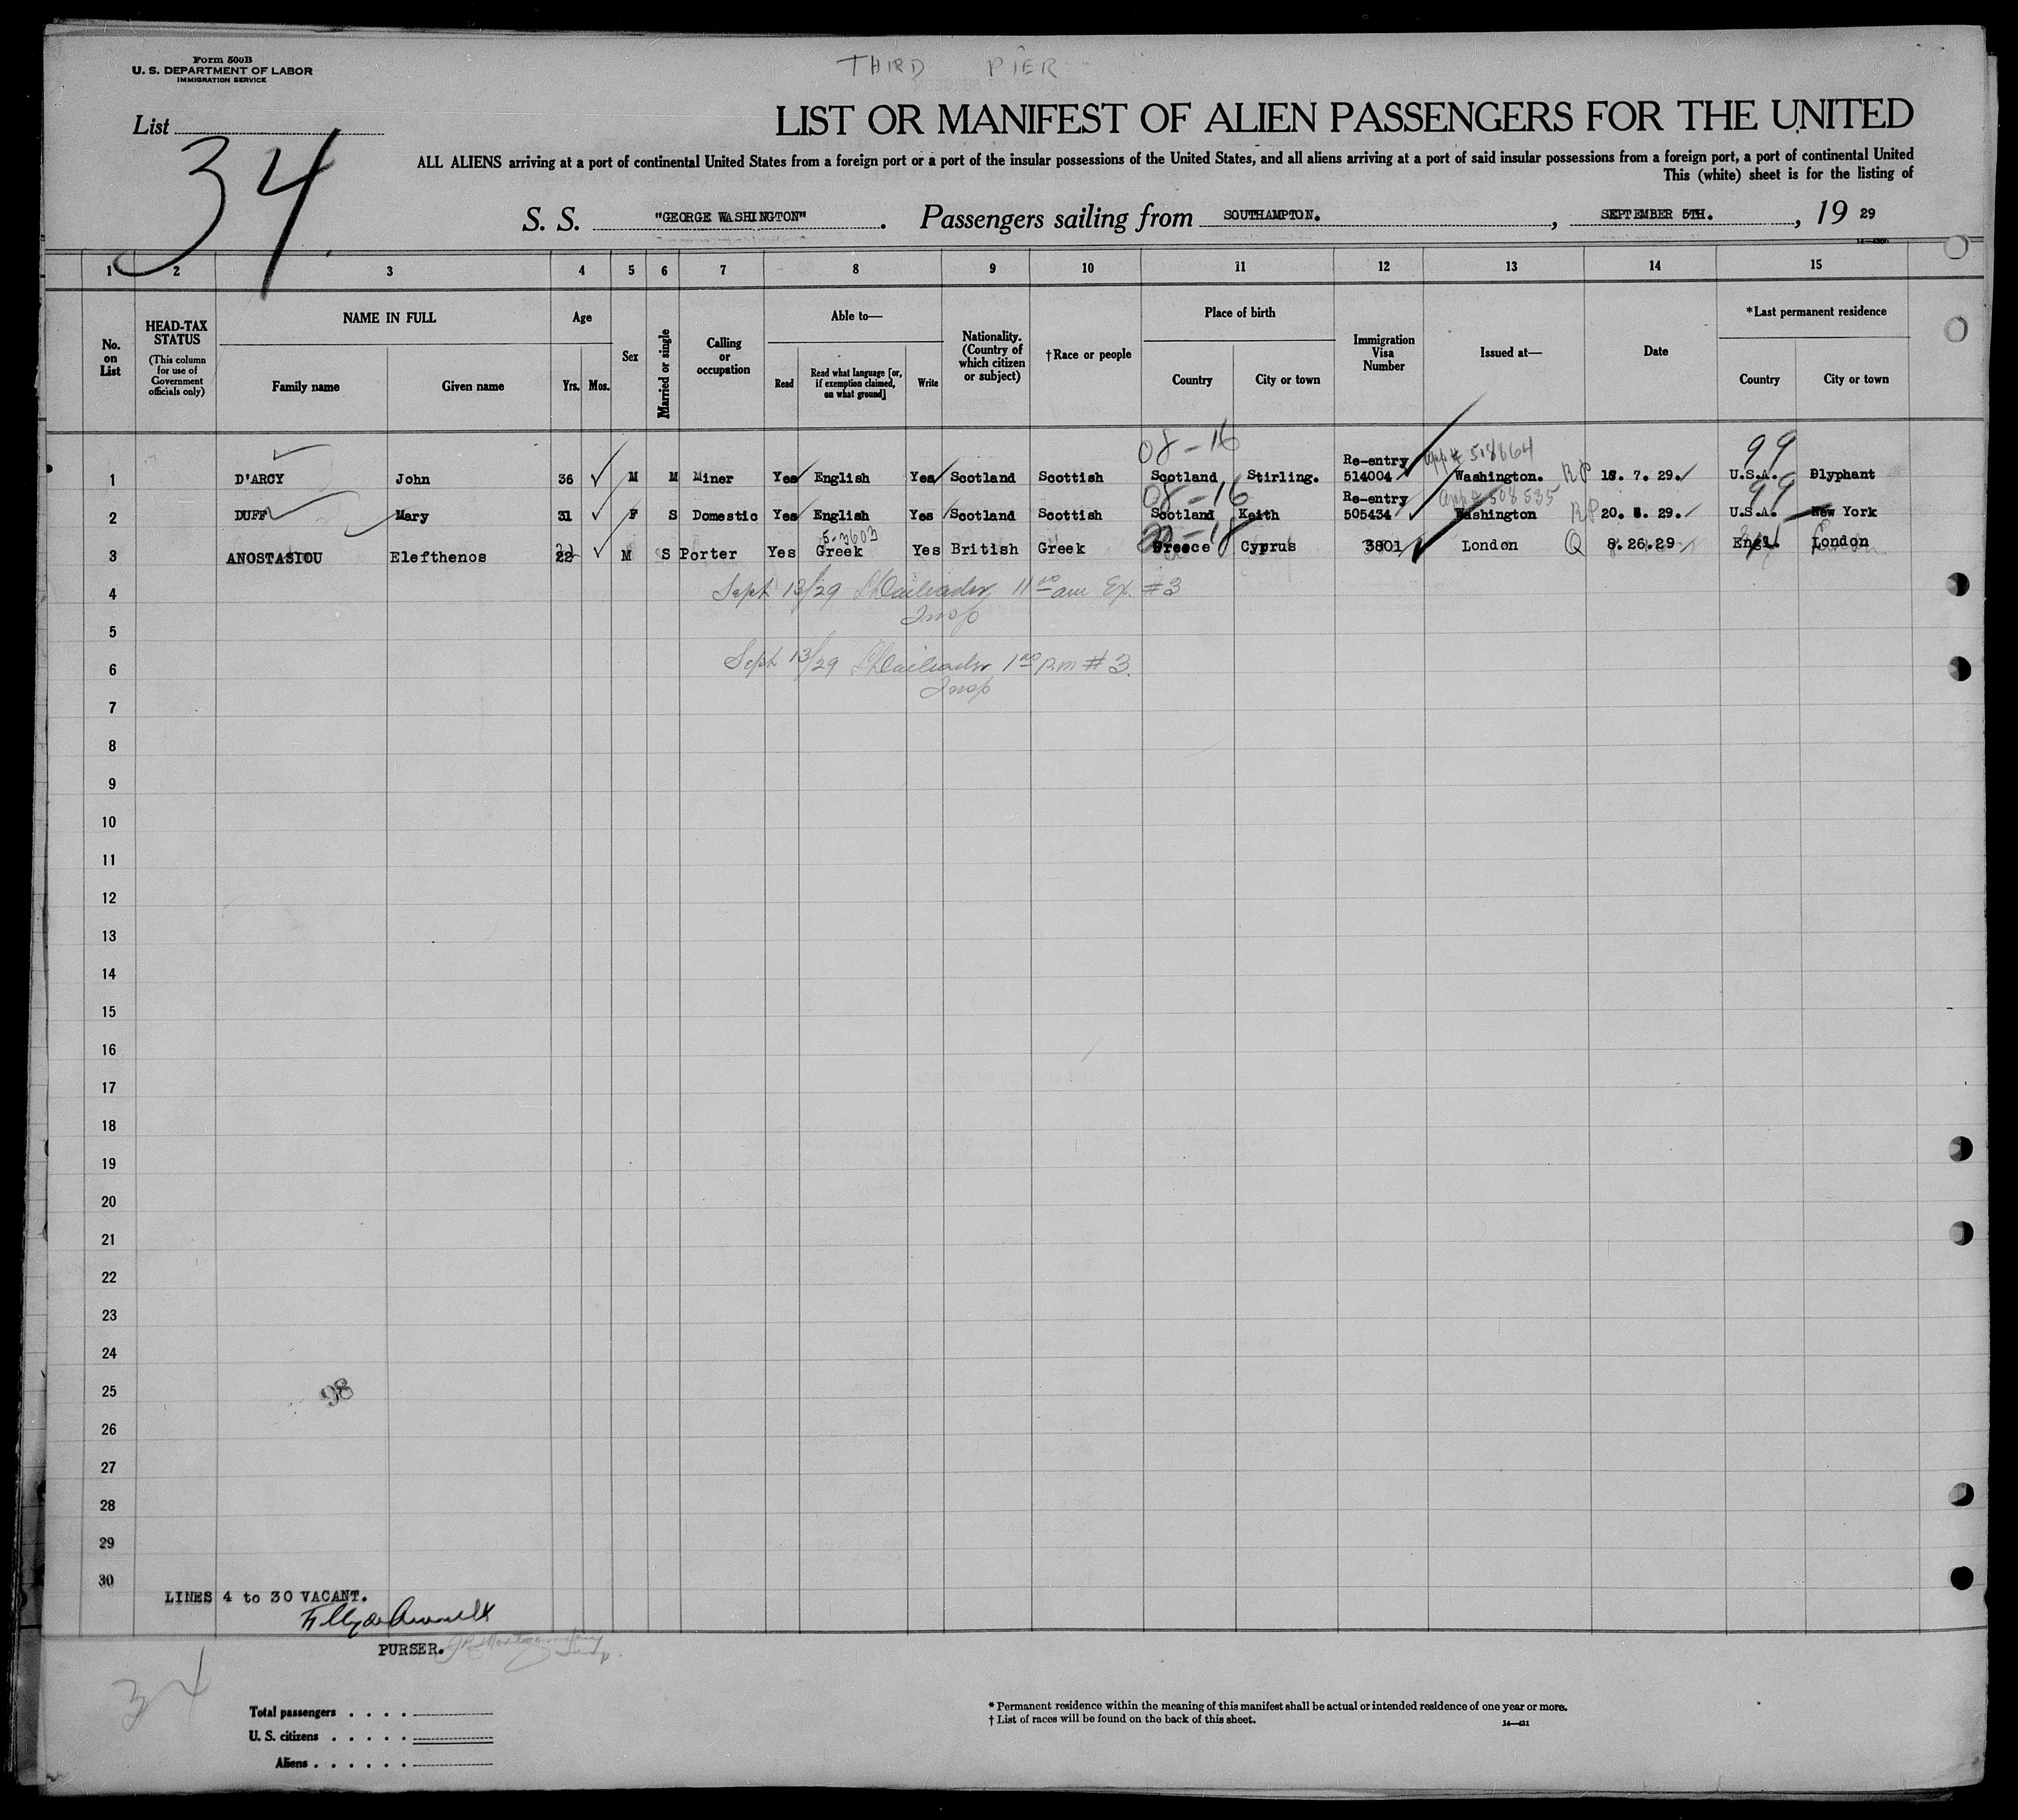 Form 500B
U. S. DEPARTMENT OF LABOR
IMMIGRATION SERVICE
THIRD PIER
List
34
LIST OR MANIFEST OF ALIEN PASSENGERS FOR THE UNITED
ALL ALIENS arriving at a port of continental United States from a foreign port or a port of the insular possessions of the United States, and all aliens arriving at a port of said insular possessions from a foreign port, a port of continental United
This (white) sheet is for the listing of
S. S. "GEORGE WASHINGTON". Passengers sailing from SOUTHAMPTON. , SEPTEMBER 5TH. , 19 29
1 2 3 4 5 6 7 8 9 10 11 12 13 14 15
No. on List
HEAD-TAX STATUS
(This column for use of Government officials only)
NAME IN FULL
Family name Given name
Age
Yrs. Mos.
Sex
Married or single
Calling or occupation
Able to—
Read
Read what language [or, if exemption claimed, on what ground]
Write
Nationality. (Country of which citizen or subject)
†Race or people
Place of birth
Country City or town
Immigration Visa Number
Issued at—
Date
*Last permanent residence
Country City or town
08-16 99
Re-entry app # 518664
1 D'ARCY John 36 M M Miner Yes English Yes Scotland Scottish Scotland Stirling. 514004 Washington. RP 18. 7. 29. U.S.A. Olyphant
08-16 Re-entry app # 508535 99
2 DUFF Mary 31 F S Domestic Yes English Yes Scotland Scottish Scotland Keith 505434 Washington RP 20. 29. U.S.A. New York
5-3603
3 ANOSTASIOU Elefthenos 22 M S Porter Yes Greek Yes British Greek Greece Cyprus 3801 London Q 8.26.29 Engl. London
4 Sept 13/29 11 00 am Ex. #3
Insp
5
6 Sept 13/29 1 00 p.m # 3.
Insp
7
8
9
10
11
12
13
14
15
16
17
18
19
20
21
22
23
24
25
98
26
27
28
29
30
LINES 4 to 30 VACANT.
PURSER.
34
Total passengers . . . .
U. S. citizens . . . . .
Aliens . . . . . .
* Permanent residence within the meaning of this manifest shall be actual or intended residence of one year or more.
† List of races will be found on the back of this sheet.
14—421